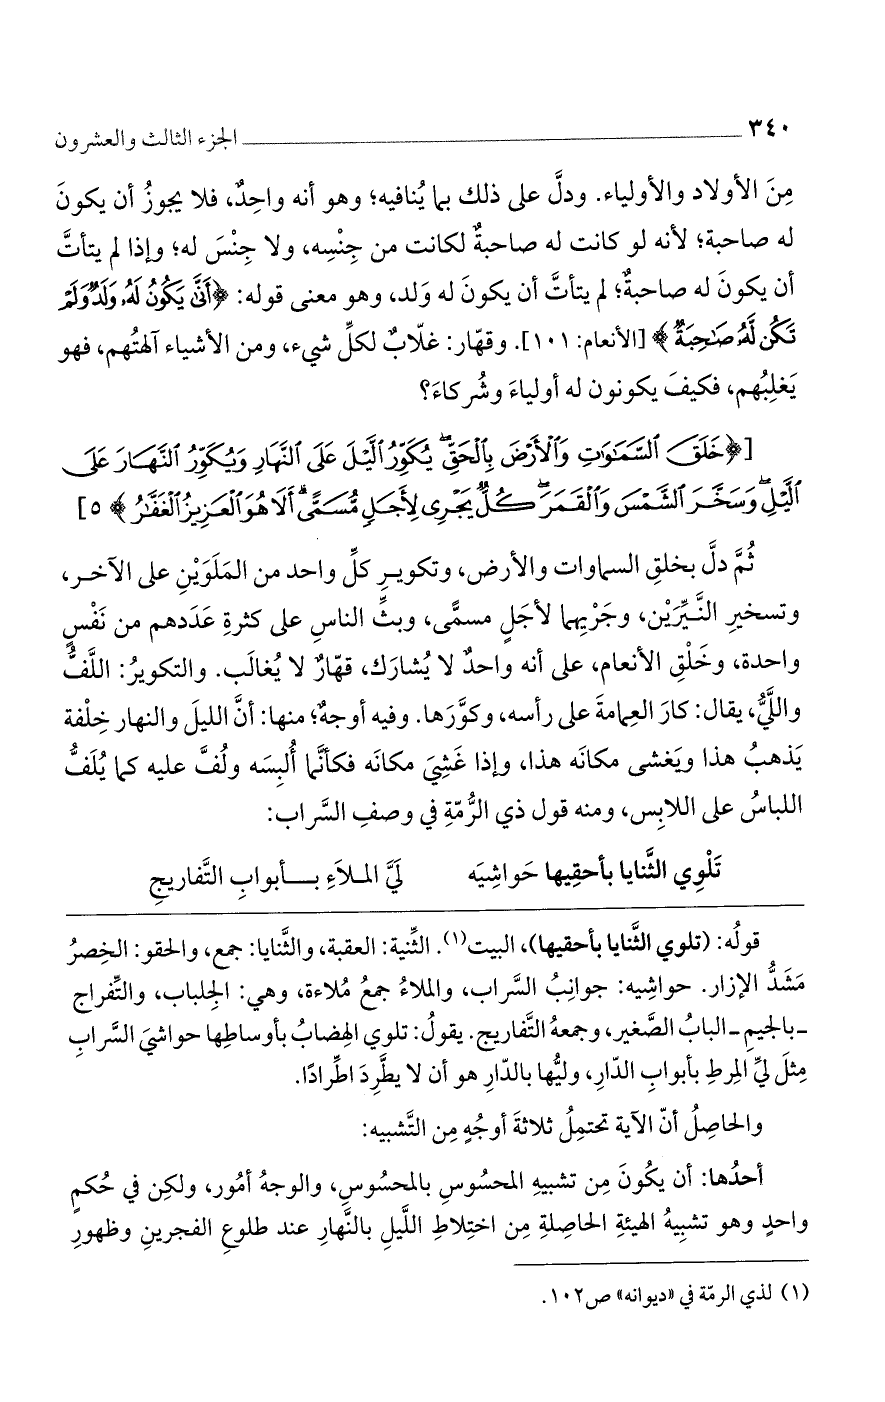 ٣٤٠ الجزء الثالث والعشرون
مِنَ الأولاد والأولياء. ودلَّ على ذلك بما يُنافيه؛ وهو أنه واحِدٌ، فلا يجوزُ أن يكونَ
له صاحبة؛ لأنه لو كانت له صاحبةٌ لكانت من جِنْسِه، ولا جِنْسَ له؛ وإذا لم يتأتَّ
أن يكونَ له صاحبةٌ؛ لم يتأتَّ أن يكونَ له وَلد، وهو معنى قوله: ﴿أَنَّىٰ يَكُونُ لَهُۥ وَلَدٌ وَلَمْ
تَكُن لَّهُۥ صَٰحِبَةٌ﴾ [الأنعام: ١٠١]. وقهّار: غلّابٌ لكلِّ شيء، ومن الأشياء آلهتُهم، فهو
يَغلِبُهم، فكيفَ يكونون له أولياءَ وشُركاءَ؟
[﴿خَلَقَ ٱلسَّمَٰوَٰتِ وَٱلْأَرْضَ بِٱلْحَقِّ ۖ يُكَوِّرُ ٱلَّيْلَ عَلَى ٱلنَّهَارِ وَيُكَوِّرُ ٱلنَّهَارَ عَلَى
ٱلَّيْلِ ۖ وَسَخَّرَ ٱلشَّمْسَ وَٱلْقَمَرَ ۖ كُلٌّ يَجْرِى لِأَجَلٍ مُّسَمًّى ۗ أَلَا هُوَ ٱلْعَزِيزُ ٱلْغَفَّٰرُ﴾ ٥]
ثُمَّ دلَّ بخلقِ السماوات والأرض، وتكويرِ كلِّ واحد من المَلَوَيْنِ على الآخر،
وتسخيرِ النَّيِّرَيْن، وجَرْيِهما لأجَلٍ مسمًّى، وبثِّ الناسِ على كثرةِ عَدَدهم من نَفْسٍ
واحدة، وخَلْقِ الأنعام، على أنه واحدٌ لا يُشارَك، قهّارٌ لا يُغالَب. والتكويرُ: اللَّفُّ
واللَّيُّ، يقال: كارَ العِمامةَ على رأسه، وكوَّرَها. وفيه أوجهٌ؛ منها: أنَّ الليلَ والنهار خِلْفة
يَذهبُ هذا ويَغشى مكانَه هذا، وإذا غَشِيَ مكانَه فكأنَّما أُلبِسَه ولُفَّ عليه كما يُلَفُّ
اللباسُ على اللابِس، ومنه قول ذي الرُّمّةِ في وصفِ السَّراب:
تَلْوِي الثَّنايا بأحقِيها حَواشِيَه لَيَّ المـلاَءِ بـأبوابِ التَّفاريجِ
قولُه: (تلوي الثَّنايا بأحقيها)، البيت(١). الثَّنِية: العقبة، والثَّنايا: جمع، والحقو: الخِصرُ
مَشَدُّ الإزار. حواشِيه: جوانِبُ السَّراب، والملاءُ جمعُ مُلاءة، وهي: الجِلباب، والتِّفراج
-بالجيمِ- البابُ الصَّغير، وجمعهُ التَّفاريج. يقولُ: تلوي الهِضابُ بأوساطِها حواشيَ السَّرابِ
مِثلَ ليِّ المِرطِ بأبوابِ الدّارِ، وليُّها بالدّارِ هو أن لا يطَّرِدَ اطِّرادًا.
والحاصِلُ أنّ الآية تحتمِلُ ثلاثةَ أوجُهٍ مِن التَّشبيه:
أحدُها: أن يكُونَ مِن تشبيهِ المحسُوسِ بالمحسُوسِ، والوجهُ أمُور، ولكِن في حُكمٍ
واحدٍ وهو تشبِيهُ الهيئةِ الحاصلةِ مِن اختِلاطِ اللَّيلِ بالنَّهارِ عند طلوعِ الفجرينِ وظهورِ
(١) لذي الرمّة في «ديوانه» ص١٠٢.